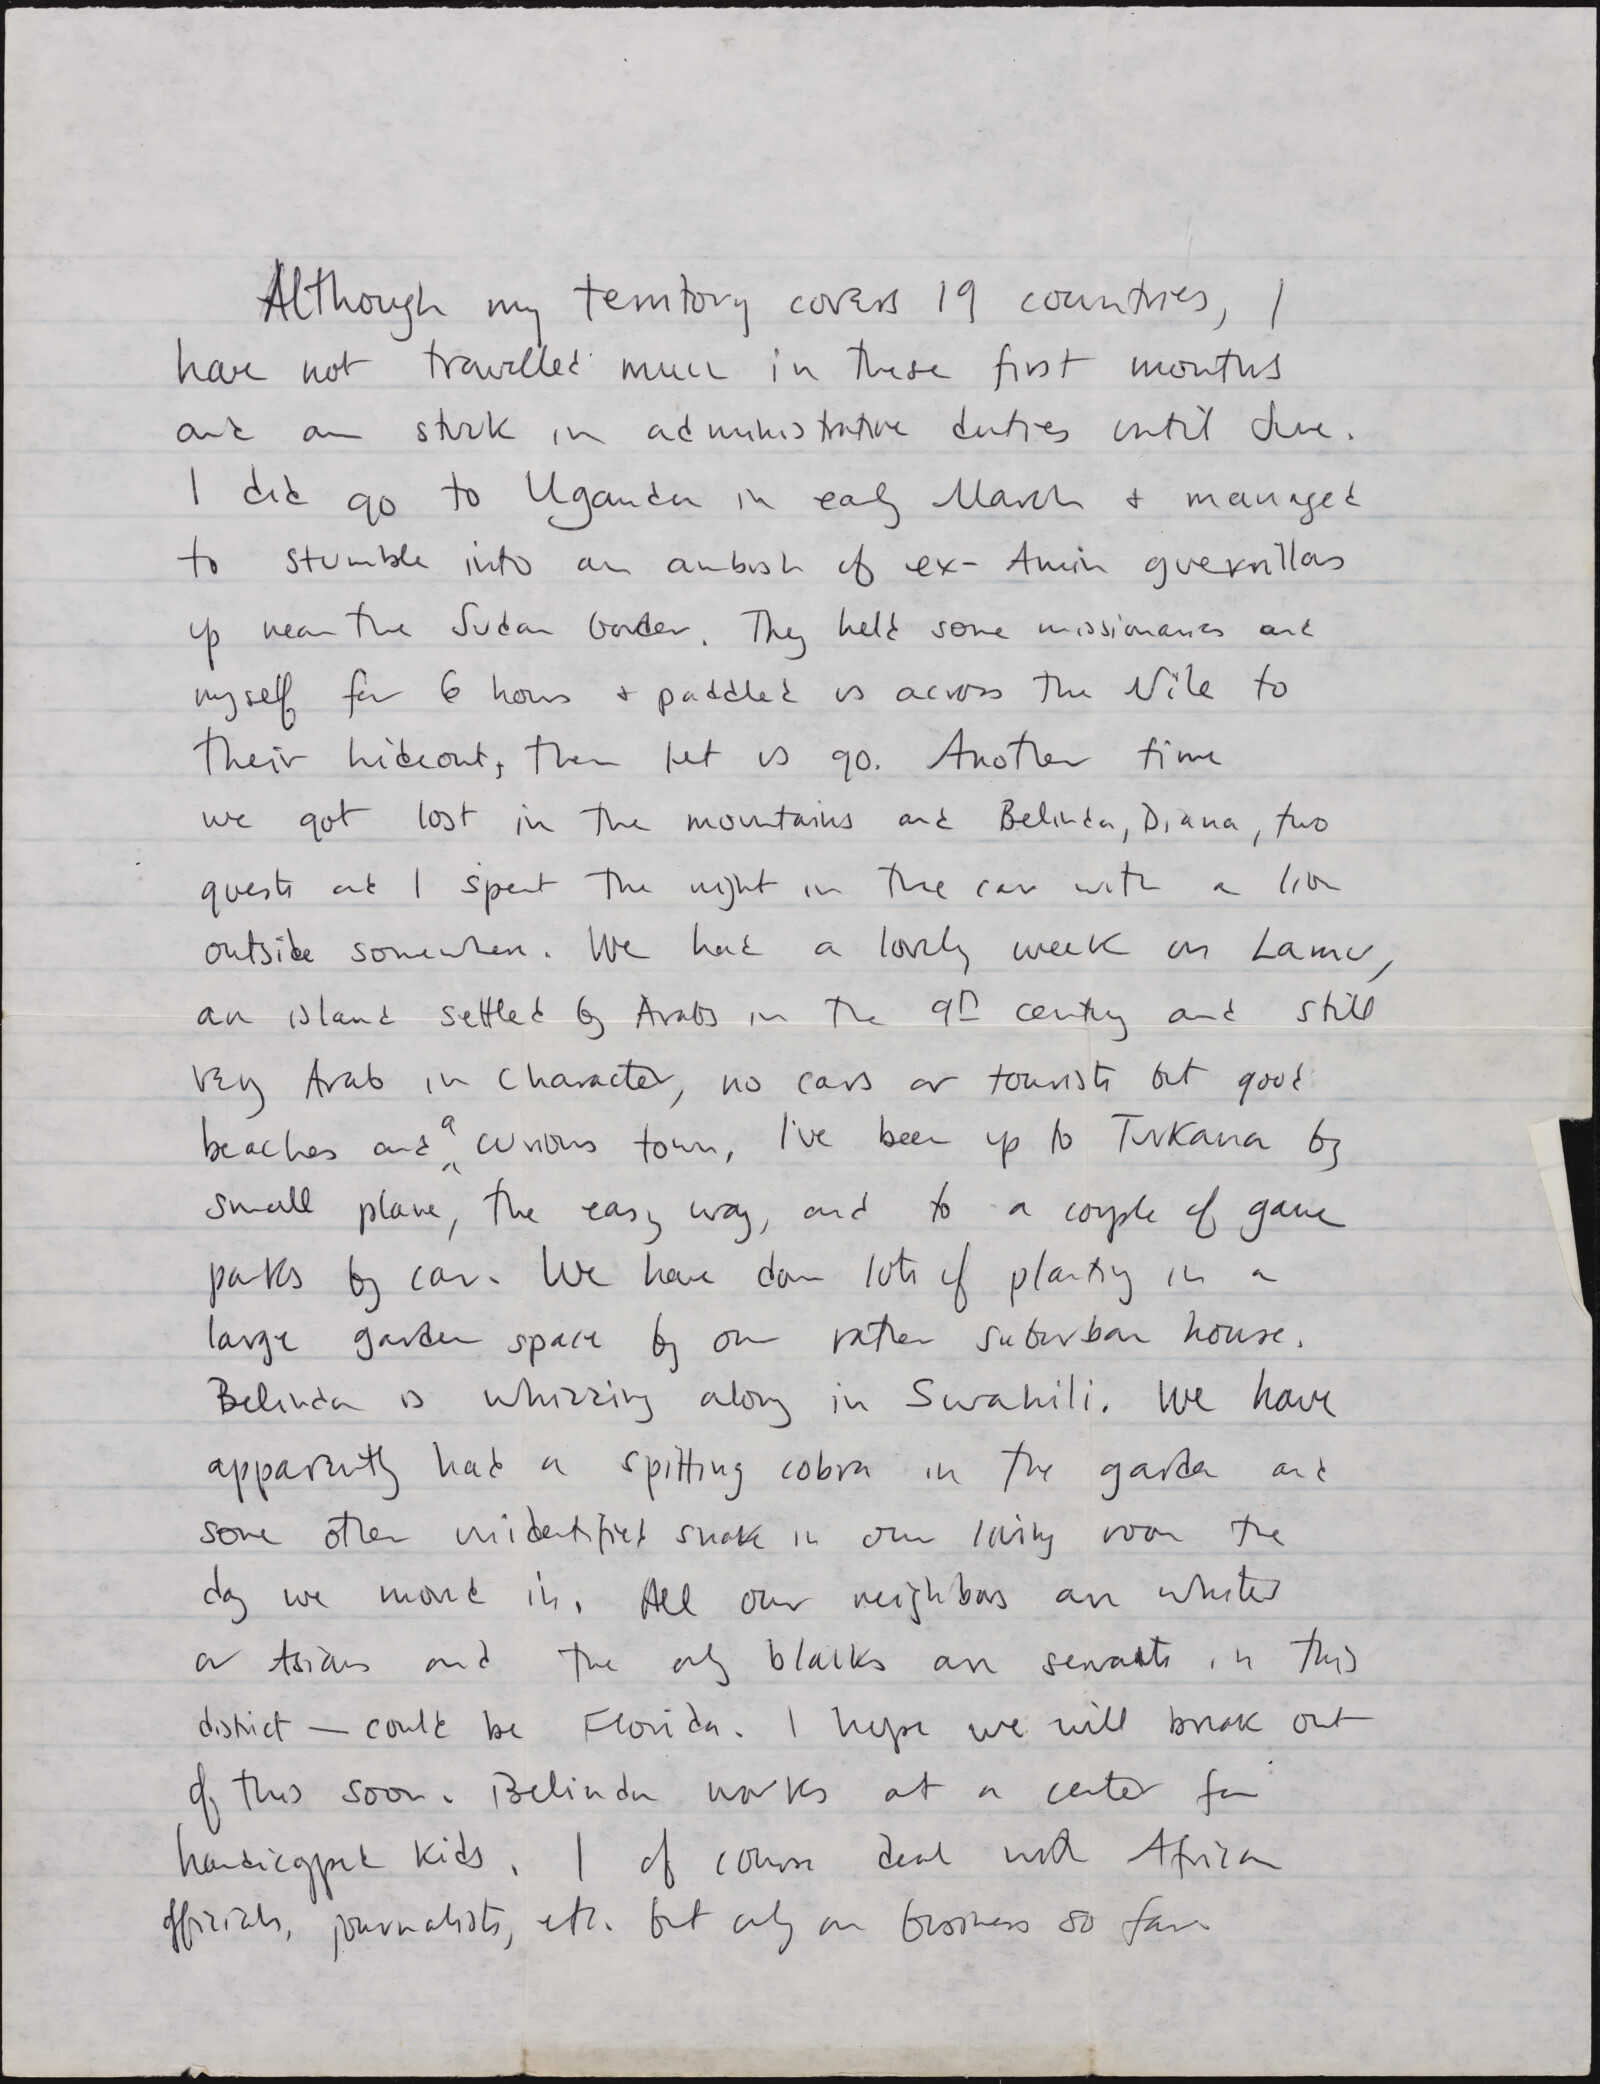 Although my territory covers 19 countries, I
have not travelled much in these first months
and am stuck in administrative duties until June.
I did go to Uganda in early March & managed
to stumble into an ambush of ex-Amin guerrillas
up near the Sudan border. They held some missionaries and
myself for 6 hours & paddled us across the Nile to
their hideout, then let us go. Another time
we got lost in the mountains and Belinda, Diana, two
guests and I spent the night in the car with a lion
outside somewhere. We had a lovely week on Lamu,
an island settled by Arabs in the 9th century and still
very Arab in character, no cars or tourists but good
beaches and a curious town. I've been up to Turkana by
small plane, the easy way, and to a couple of game
parks by car. We have done lots of planting in a
large garden space by our rather suburban house.
Belinda is whizzing along in Swahili. We have
apparently had a spitting cobra in the garden and
some other unidentified snake in our living room the
day we moved in. All our neighbors are whites
or Asians and the only blacks are servants in this
district — could be Florida. I hope we will break out
of this soon. Belinda works at a center for
handicapped kids. I of course deal with African
officials, journalists, etc. but only on business so far.